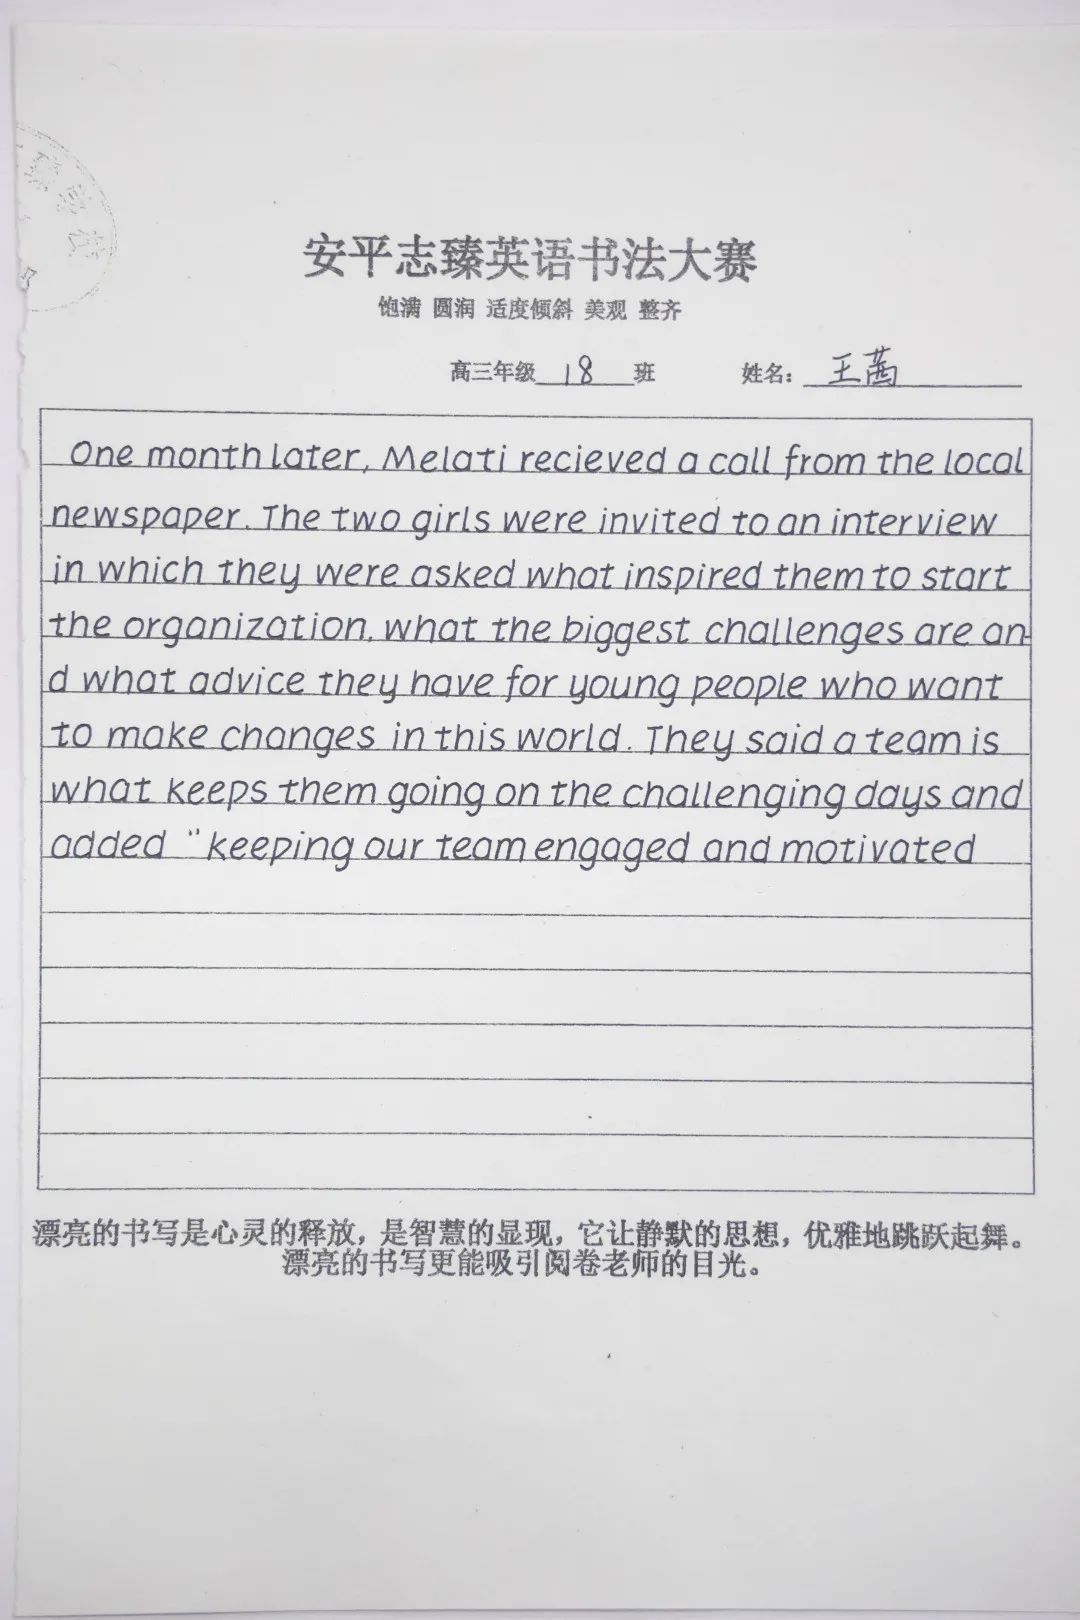 臻学校
安平志臻英语书法大赛
饱满 圆润 适度倾斜 美观 整齐
高三年级 18 班 姓名: 王茜
One month later, Melati recieved a call from the local
newspaper. The two girls were invited to an interview
in which they were asked what inspired them to start
the organization, what the biggest challenges are an-
d what advice they have for young people who want
to make changes in this world. They said a team is
what keeps them going on the challenging days and
added "keeping our team engaged and motivated
漂亮的书写是心灵的释放，是智慧的显现，它让静默的思想，优雅地跳跃起舞。
漂亮的书写更能吸引阅卷老师的目光。